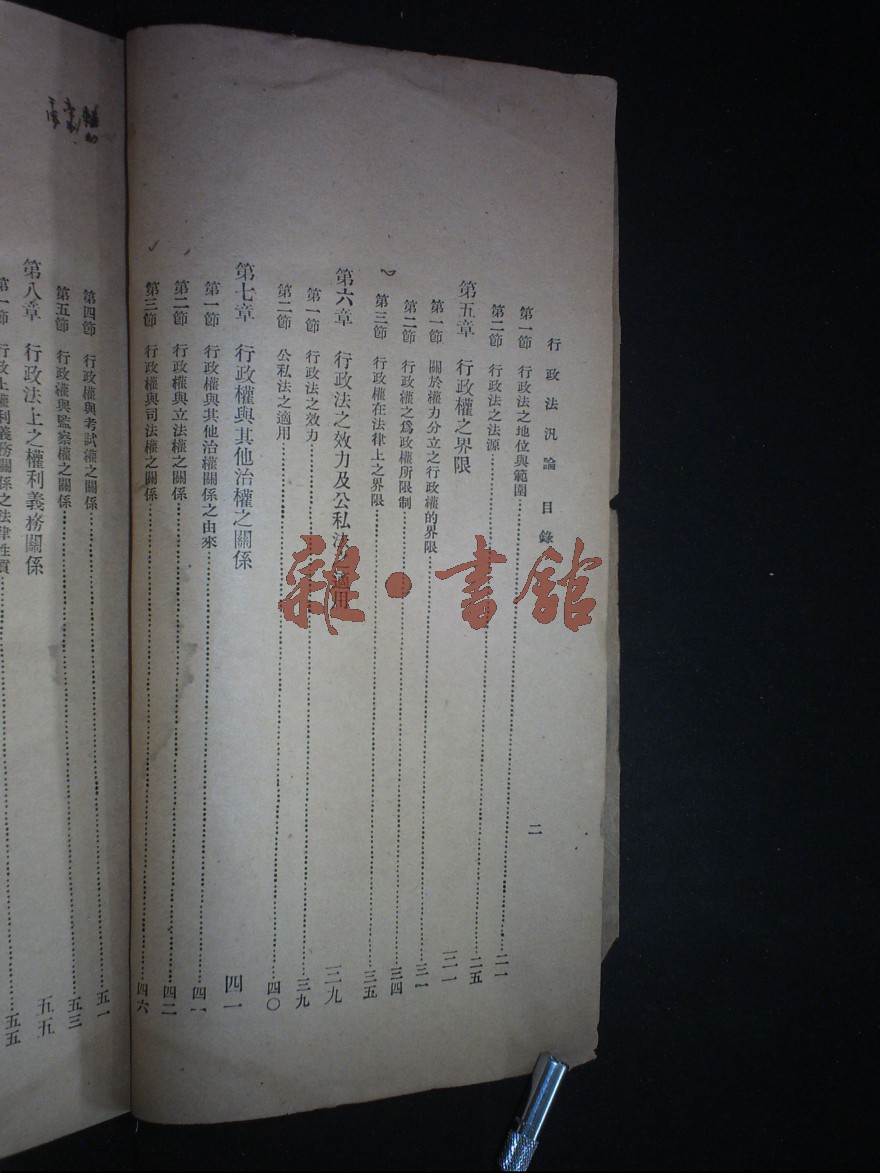 行政法汎論 目錄
二
第一節 行政法之地位與範圍 二一
第二節 行政法之法源 二五
第五章 行政權之界限 三一
第一節 關於權力分立之行政權的界限 三一
第二節 行政權之為政權所限制 三四
第三節 行政權在法律上之界限 三五
第六章 行政法之效力及公私法之適用 三九
第一節 行政法之效力 三九
第二節 公私法之適用 四〇
第七章 行政權與其他治權之關係 四一
第一節 行政權與其他治權關係之由來 四一
第二節 行政權與立法權之關係 四二
第三節 行政權與司法權之關係 四六
第四節 行政權與考試權之關係 五一
第五節 行政權與監察權之關係 五三
第八章 行政法上之權利義務關係 五五
第一節 行政上權利義務關係之法律性質 五五
雜·書館